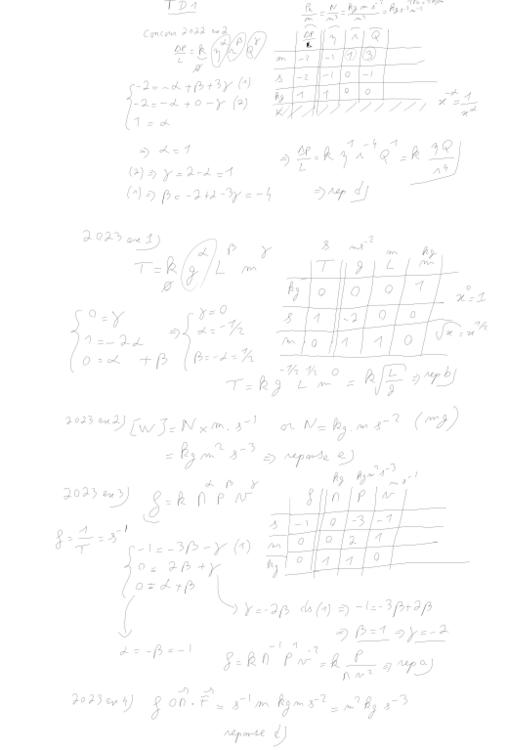 TD1
Pa/m = N/m³ = kg m s⁻²/m³ = kg s⁻² m⁻²
Concours 2022 ex2
ΔP/L = k η^α r^β Q^γ
ΔP/L | η | r | Q
m | -2 | -1 | 1 | 3
s | -2 | -1 | 0 | -1
kg | 1 | 1 | 0 | 0
-2 = -α + β + 3γ (1)
-2 = -α + 0 - γ (2)
1 = α
x^-α = 1/x^α
=> α = 1
(2) => γ = 2-α = 1
(1) => β = -2+α-3γ = -4
=> ΔP/L = k η¹ r⁻⁴ Q¹ = k ηQ/r⁴
=> rep d)
2023 ex1)
T = k g^α L^β m^γ
s | ms⁻² | m | kg
T | g | L | m
kg | 0 | 0 | 0 | 1
s | 1 | -2 | 0 | 0
m | 0 | 1 | 1 | 0
x⁰ = 1
√x = x^1/2
0 = γ
1 = -2α
0 = α + β
=> γ = 0
α = -1/2
β = -α = 1/2
T = k g^-1/2 L^1/2 m⁰ = k √(L/g) => rep b)
2023 ex2) [W] = N × m . s⁻¹ or N = kg . m s⁻² (mg)
= kg m² s⁻³ => reponse e)
2023 ex3) f = k M^α P^β v^γ
kg | kg m² s⁻³ | m s⁻¹
f | M | P | v
s | -1 | 0 | -3 | -1
m | 0 | 0 | 2 | 1
kg | 0 | 1 | 1 | 0
f = 1/T = s⁻¹
-1 = -3β - γ (1)
0 = 2β + γ
0 = α + β
γ = -2β ds (1) => -1 = -3β + 2β
=> β = 1 => γ = -2
α = -β = -1
f = k M⁻¹ P¹ v⁻² = k P/(M v²) => rep a)
2023 ex4) f OM . F = s⁻¹ m kg m s⁻² = m² kg s⁻³
reponse d)